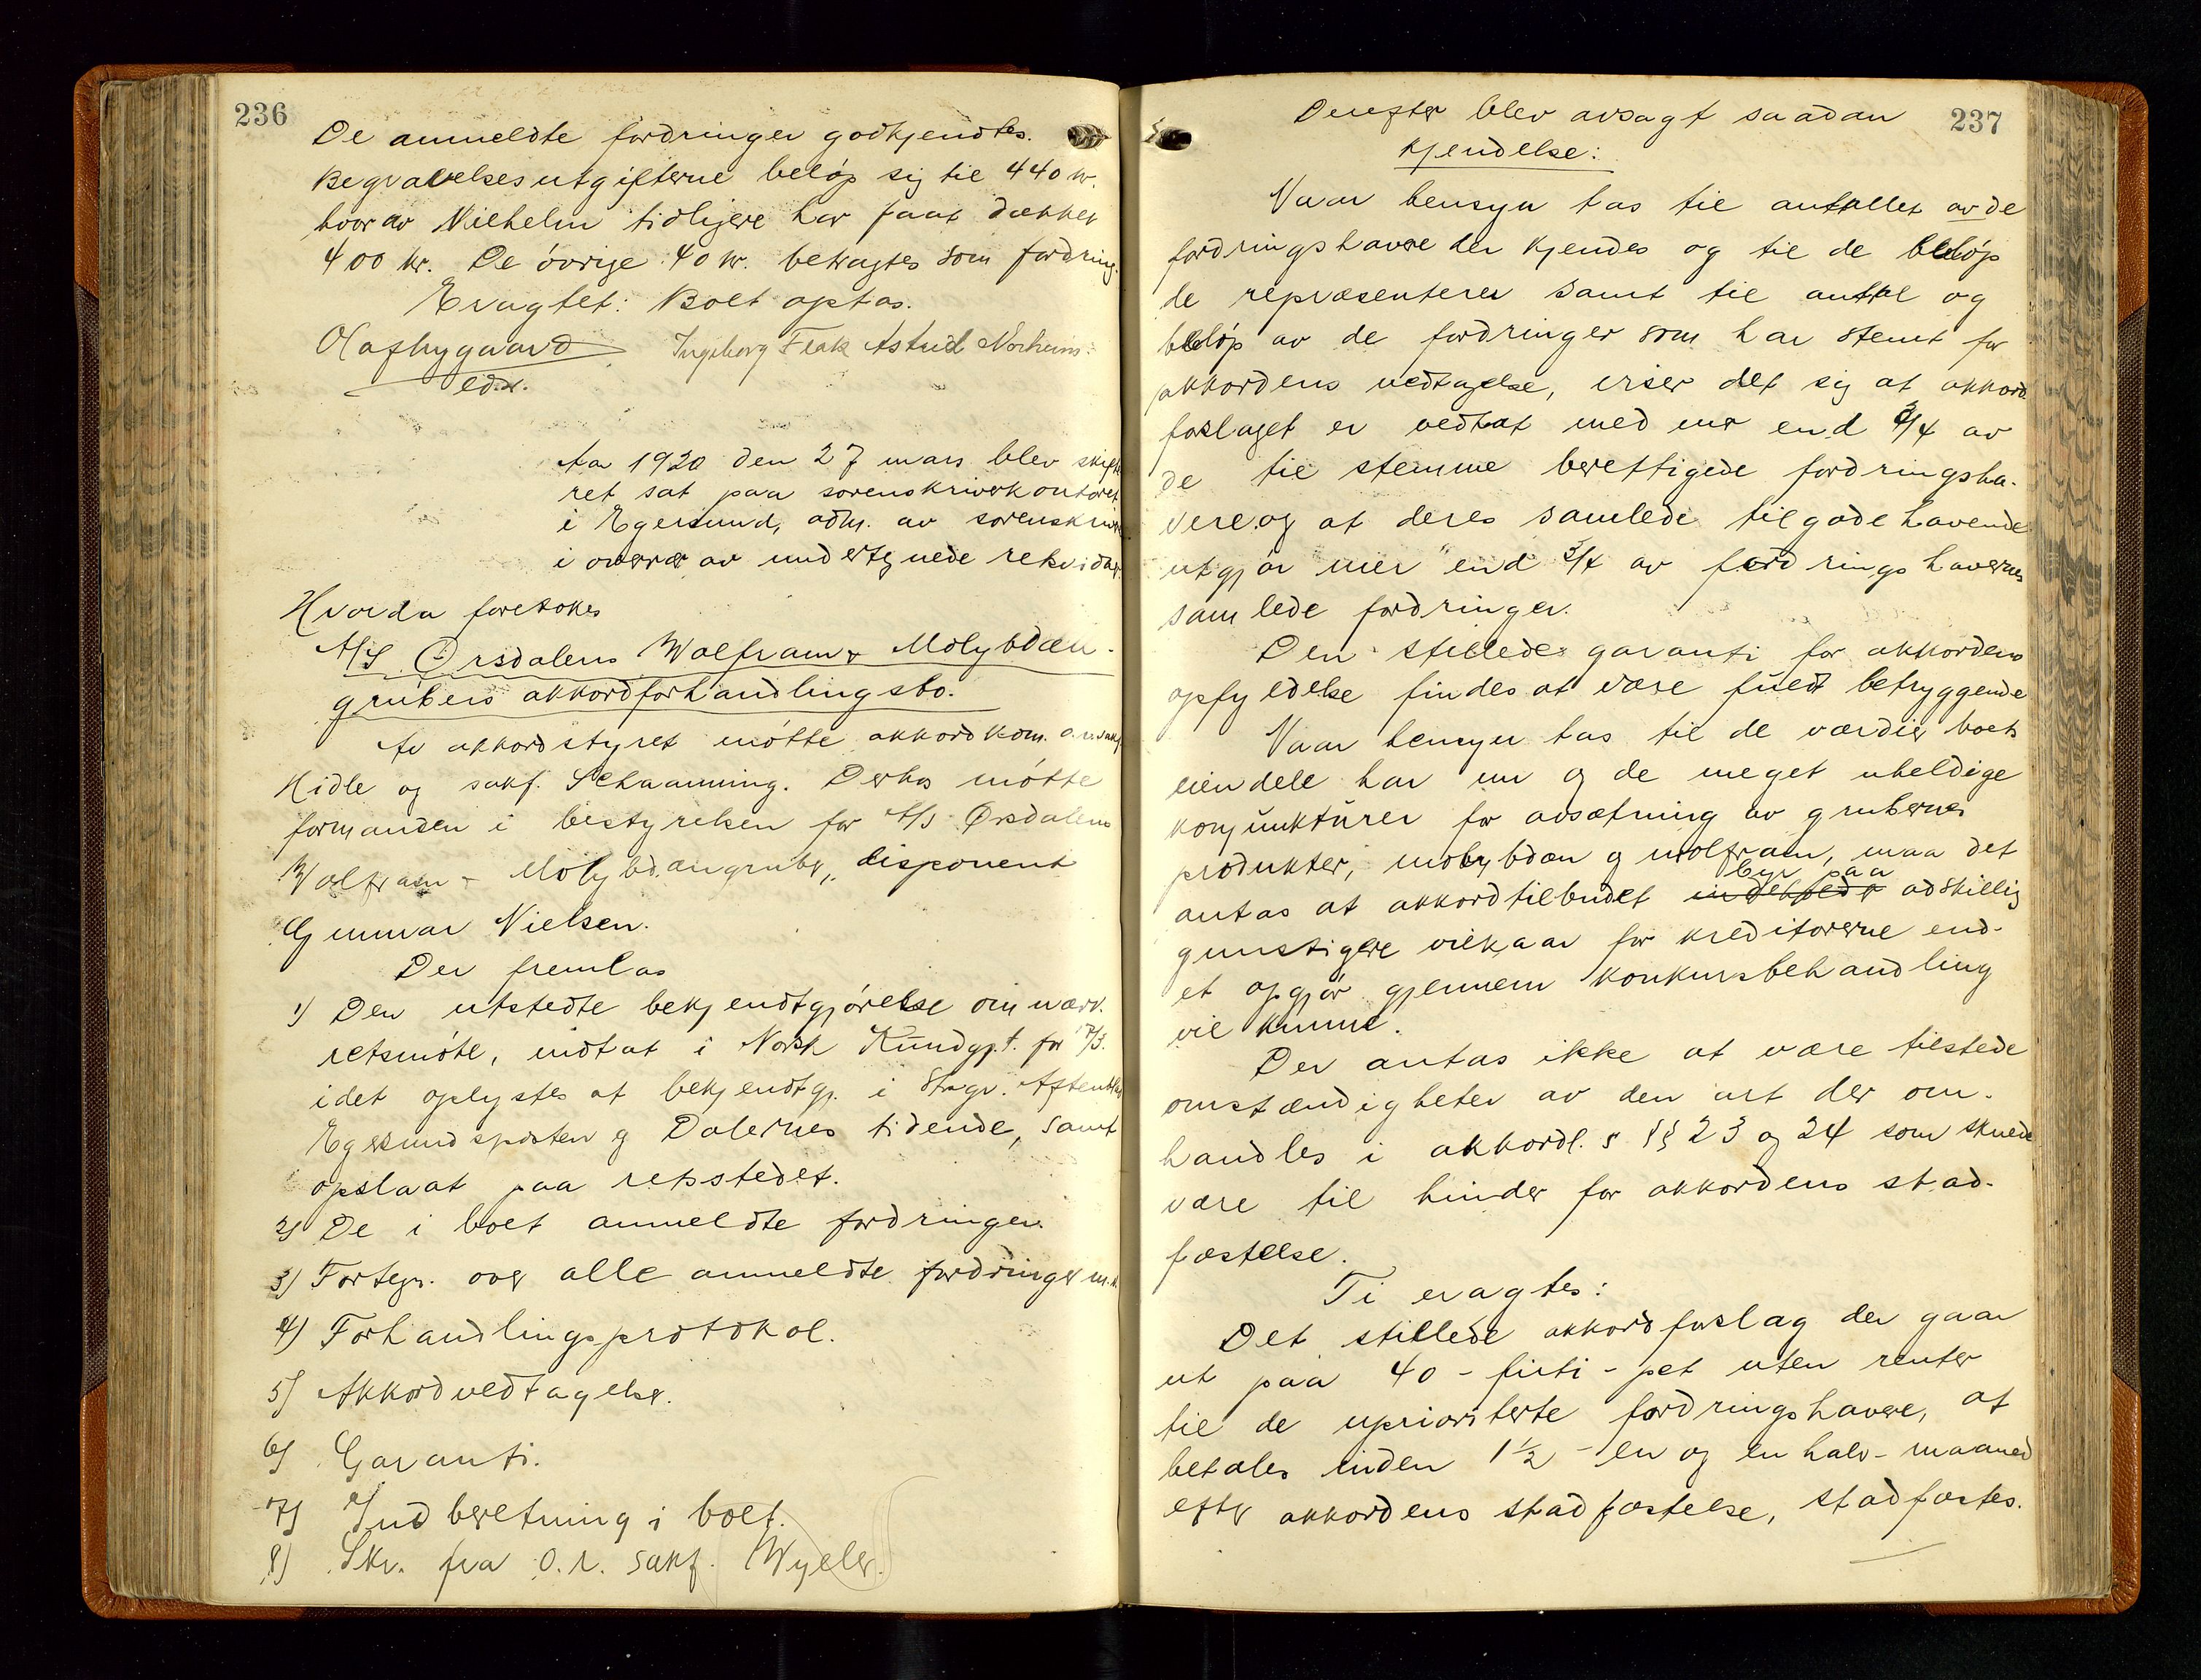 236
De anmeldte fordringer godkjendtes.
Begravelsesutgifterne beløp sig til 440 kr.
hvorav Vilhelm tidligere har faat dækket
400 kr. De øvrige 40 kr. betragtes som fordring.
Eragtet: Boet optas.
Olafrygaard Ingeborg Flak Astrid Norheim.
ed.r.
Aar 1920 den 27 mars blev skifte
ret sat paa sorenskriverkontoret
i Egersund, adm. av sorenskriver
i overvær av undertegnede retsvidner.
Hvorda foretokes
A/S Ørsdalens Wolfram & Molybdæn-
grubers akkordforhandlingsbo.
Av akkordstyret møtte akkordkom. o.r.sakf.
Hidle og sakf. Schaanning. Derhos møtte
formanden i bestyrelsen for A/S Ørsdalens
Wolfram- Molybdængruber, disponent
Gunnar Nielsen.
Der fremlas
1) Den utstedte bekjendtgjørelse om nærv.
retsmøte, indtat i Norsk Kundgj.t. for 17/3.
idet oplystes at bekjendtgj. i Stvgr. Aftenblad
Egersundsposten og Dalernes tidende, samt
opslaat paa retsstedet.
2) De i boet anmeldte fordringer.
3) Fortegn. over alle anmeldte fordringer m.v.
4) Forhandlingsprotokol.
5) Akkordvedtagelser.
6) Garanti.
7) Indberetning i boet.
8) Skr. fra o.r. sakf. Wyller.
237
Derefter blev avsagt saadan
kjendelse:
Naar hensyn tas til antallet av de
fordringshavere der kjendes og til de beløp
de repræsenterer samt til antal og
beløp av de fordringer som har stemt for
akkordens vedtagelse, viser det sig at akkord
forslaget er vedtat med mer end 3/4 av
de til stemme berettigede fordringsha-
vere og at deres samlede tilgodehavende
utgjør mer end 3/4 av fordringshavernes
samlede fordringer.
Den stillede garanti for akkordens
opfyldelse findes at være fuldt betryggende
Naar hensyn tas til de værdier boets
eiendele har nu og de meget uheldige
konjunkturer for avsætning av grubernes
produkter, molybdæn og wolfram, maa det
byr paa
antas at akkordtilbudet adskillig
gunstigere vilkaar for kreditorerne end
et opgjør gjennem konkursbehandling
vil kunne.
Der antas ikke at være tilstede
omstændigheter av den art der om-
handles i akkordl. s §§ 23 og 24 som skulde
være til hinder for akkordens stad-
fæstelse.
Ti eragtes:
Det stillede akkordforslag der gaar
ut paa 40 - firti - pct uten renter
til de uprioriterte fordringshavere, at
betales inden 1½ - en og en halv - maaned
efter akkordens stadfæstelse, stadfæstes.